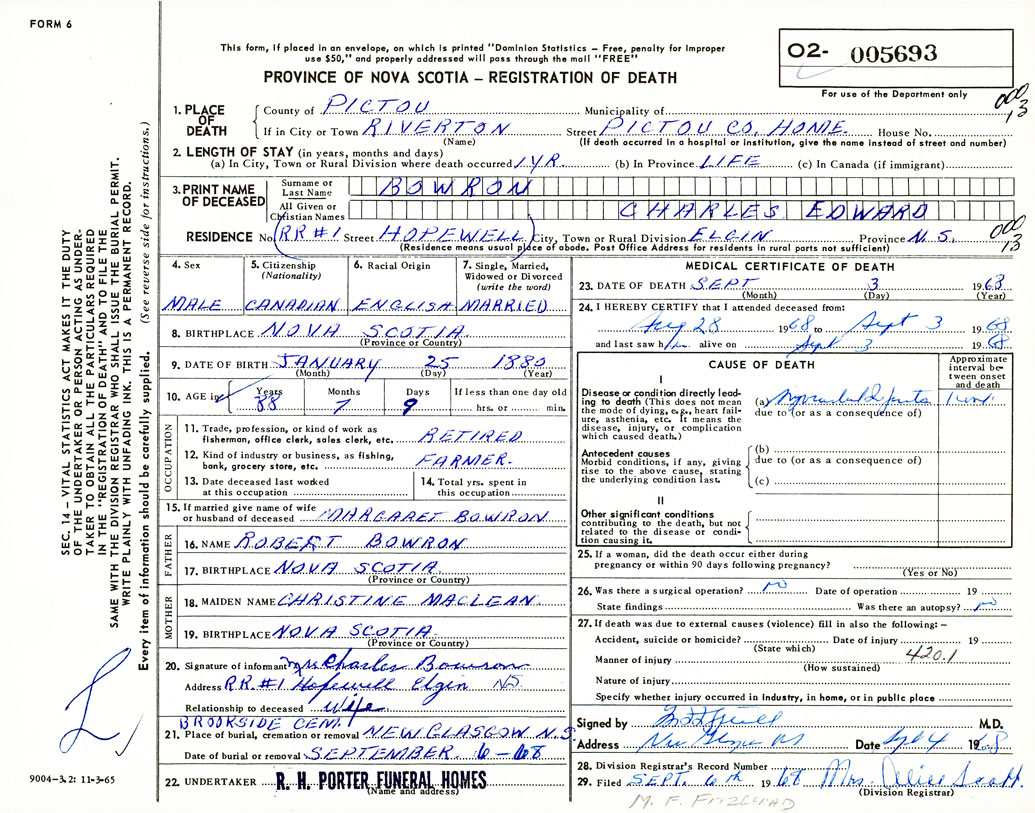 FORM 6
This form, if placed in an envelope, on which is printed "Dominion Statistics – Free, penalty for improper
use $50," and properly addressed will pass through the mail "FREE"
PROVINCE OF NOVA SCOTIA – REGISTRATION OF DEATH
O2- 005693
For use of the Department only
000
13
SEC. 14 – VITAL STATISTICS ACT MAKES IT THE DUTY
OF THE UNDERTAKER OR PERSON ACTING AS UNDER-
TAKER TO OBTAIN ALL THE PARTICULARS REQUIRED
IN THE "REGISTRATION OF DEATH" AND TO FILE THE
SAME WITH THE DIVISION REGISTRAR WHO SHALL ISSUE THE BURIAL PERMIT.
WRITE PLAINLY WITH UNFADING INK. THIS IS A PERMANENT RECORD.
Every item of information should be carefully supplied. (See reverse side for instructions.)
1. PLACE OF DEATH
County of PICTOU Municipality of
If in City or Town RIVERTON Street PICTOU CO. HOME. House No.
(Name) (If death occurred in a hospital or institution, give the name instead of street and number)
2. LENGTH OF STAY (in years, months and days)
(a) In City, Town or Rural Division where death occurred 1 YR. (b) In Province LIFE (c) In Canada (if immigrant)
3. PRINT NAME OF DECEASED
Surname or Last Name BOWRON
All Given or Christian Names CHARLES EDWARD
RESIDENCE No. RR #1 Street HOPEWELL City, Town or Rural Division ELGIN Province N.S.
(Residence means usual place of abode. Post Office Address for residents in rural parts not sufficient)
000
13
4. Sex MALE
5. Citizenship (Nationality) CANADIAN
6. Racial Origin ENGLISH
7. Single, Married, Widowed or Divorced (write the word) MARRIED
8. BIRTHPLACE NOVA SCOTIA
(Province or Country)
9. DATE OF BIRTH JANUARY 25 1880
(Month) (Day) (Year)
10. AGE in Years 88 Months 7 Days 9 If less than one day old
hrs. or min.
OCCUPATION
11. Trade, profession, or kind of work as
fisherman, office clerk, sales clerk, etc. RETIRED
12. Kind of industry or business, as fishing,
bank, grocery store, etc. FARMER.
13. Date deceased last worked
at this occupation
14. Total yrs. spent in
this occupation
15. If married give name of wife
or husband of deceased MARGARET BOWRON
FATHER
16. NAME ROBERT BOWRON
17. BIRTHPLACE NOVA SCOTIA
(Province or Country)
MOTHER
18. MAIDEN NAME CHRISTINE MACLEAN
19. BIRTHPLACE NOVA SCOTIA.
(Province or Country)
20. Signature of informant Mrs Charles Bowron
Address RR. #1 Hopewell Elgin NS
Relationship to deceased wife
BROOKSIDE CEM.
21. Place of burial, cremation or removal NEW GLASGOW N.S.
Date of burial or removal SEPTEMBER 6 - 68
22. UNDERTAKER R. H. PORTER FUNERAL HOMES
(Name and address)
9004-3.2: 11-3-65
MEDICAL CERTIFICATE OF DEATH
23. DATE OF DEATH SEPT 3 1968
(Month) (Day) (Year)
24. I HEREBY CERTIFY that I attended deceased from:
Aug 28 1968 to Sept 3 1968
and last saw him alive on Sept 3 1968
CAUSE OF DEATH
Approximate interval between onset and death
I
Disease or condition directly lead-
ing to death (This does not mean
the mode of dying, e.g., heart fail-
ure, asthenia, etc. It means the
disease, injury, or complication
which caused death.)
(a)
due to (or as a consequence of)
Antecedent causes
Morbid conditions, if any, giving
rise to the above cause, stating
the underlying condition last.
(b)
due to (or as a consequence of)
(c)
II
Other significant conditions
contributing to the death, but not
related to the disease or condi-
tion causing it.
25. If a woman, did the death occur either during
pregnancy or within 90 days following pregnancy?
(Yes or No)
26. Was there a surgical operation? no Date of operation 19
State findings Was there an autopsy? no
27. If death was due to external causes (violence) fill in also the following: –
Accident, suicide or homicide? Date of injury 19
(State which)
420.1
Manner of injury
(How sustained)
Nature of injury
Specify whether injury occurred in industry, in home, or in public place
Signed by M.D.
Address New Glasgow NS Date Sept 4 1968
28. Division Registrar's Record Number
29. Filed SEPT. 6th 1968 Mrs. Alice Scott
(Division Registrar)
M. F. FITZGERALD